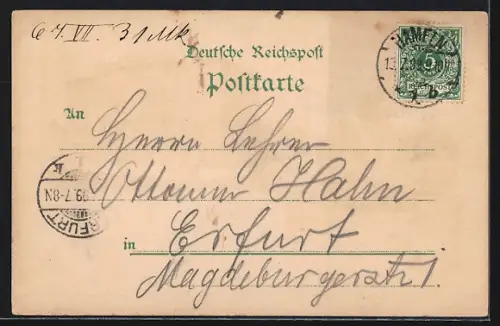 67. VII. 31 Mk
Deutsche Reichspost
Postkarte
HAMELN
5
REICHSPOST
* 1 b
An
Herrn Lehrer
Ottomar Hahn
ERFURT
.99.7-8N
in Erfurt
Magdeburgerstr.